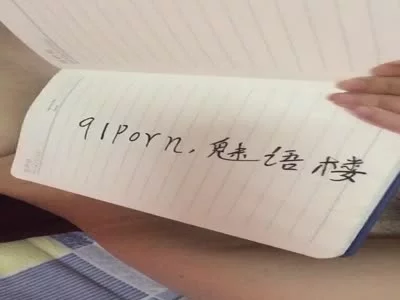 91Porn，魅语楼